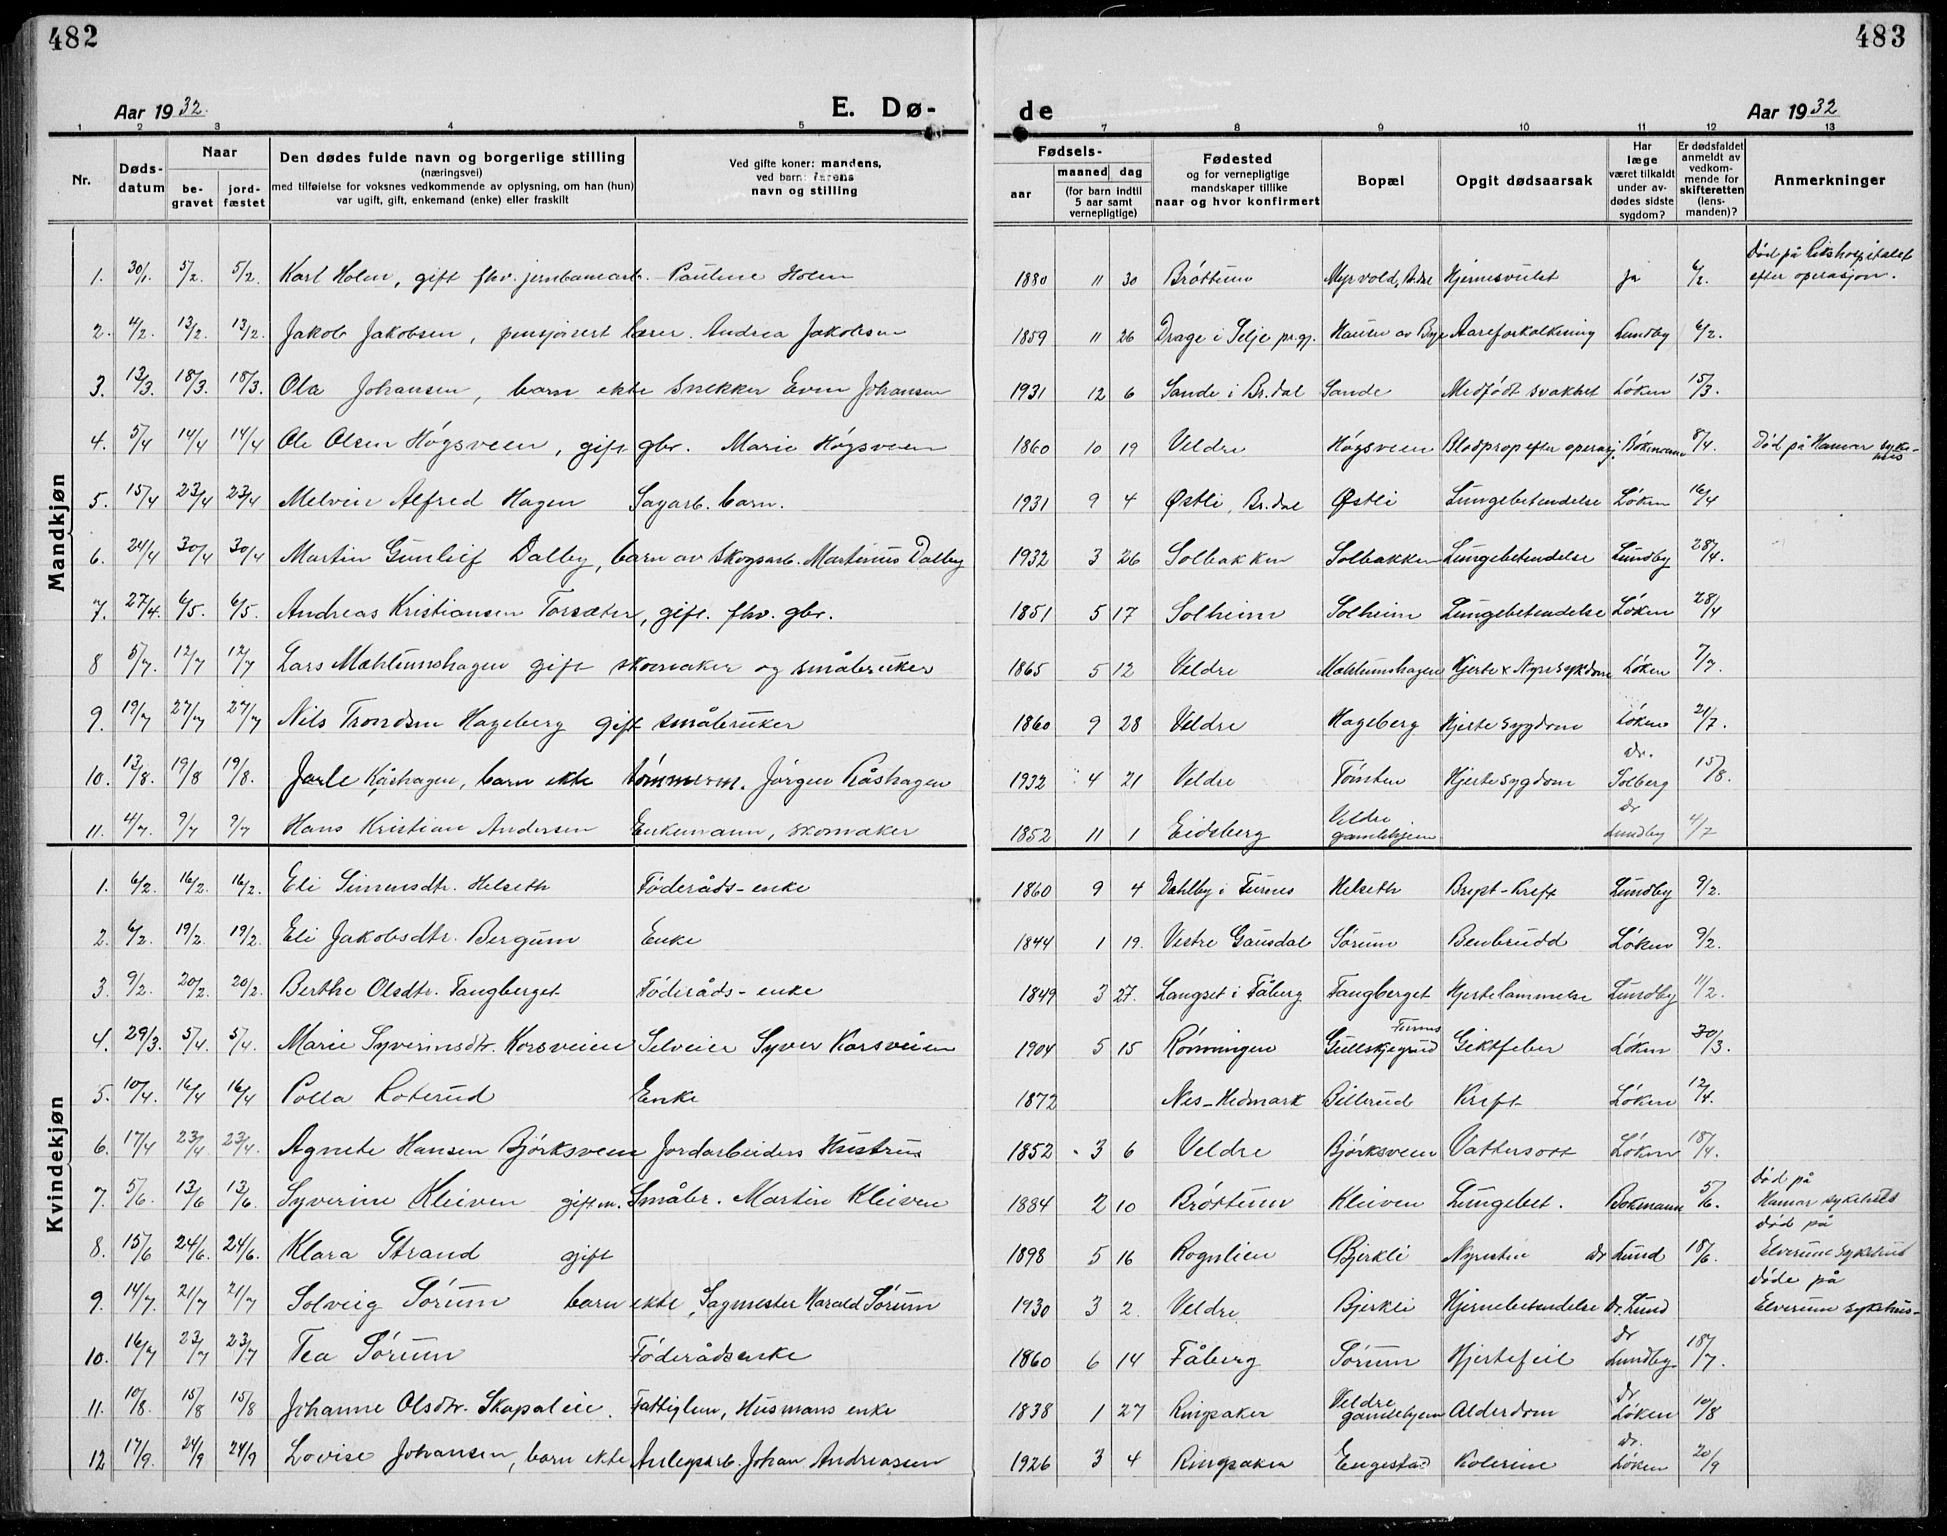 482
483
Aar 1932.
E. Dø-
de
Aar 1932
1 2 3 4 5
7 8 9 10 11 12 13
Nr.
Døds-
datum
Naar
be-
gravet
jord-
fæstet
Den dødes fulde navn og borgerlige stilling
(næringsvei)
med tilføielse for voksnes vedkommende av oplysning, om han (hun)
var ugift, gift, enkemand (enke) eller fraskilt
Ved gifte koner: mandens,
ved barn: farens
navn og stilling
Fødsels-
aar
maaned dag
(for barn indtil
5 aar samt
vernepligtige)
Fødested
og for vernepligtige
mandskaper tillike
naar og hvor konfirmert
Bopæl
Opgit dødsaarsak
Har
læge
været tilkaldt
under av-
dødes sidste
sygdom?
Er dødsfaldet
anmeldt av
vedkom-
mende for
skifteretten
(lens-
manden)?
Anmerkninger
Mandkjøn
1. 30/1. 5/2. 5/2. Karl Holen, gift fhv. jernbanearb. Pauline Holen 1880 11 30 Brøttum Myrvold, Br.dal Hjernesvulst ja 6/2. Død på Rikshospitalet efter operasjon.
2. 4/2. 13/2. 13/2. Jakob Jakobsen, pensjonert lærer. Andrea Jakobsen 1859 11 26 Drage i Selje pr.gj. Hausen av Bye Aareforkalkning Lundby 6/2.
3. 13/3. 18/3. 18/3. Ola Johansen, barn ekte Snekker Even Johansen 1931 12 6 Sande i Br.dal Sande Medfødt svakhet Løken 15/3.
4. 5/4 14/4 14/4 Ole Olsen Høgsveen, gift gbr. Marie Høgsveen 1860 10 19 Veldre Høgsveen Blodprop efter operasj. Bökmann 8/4. Död på Hamar syke-hus
5. 15/4 23/4 23/4 Melvin Alfred Hagen Sagarb. barn. 1931 9 4 Østli, Br.dal Østli Lungebetendelse Løken 16/4
6. 24/4 30/4 30/4 Martin Gunleif Dalby, barn av skogsarb. Martinus Dalby 1932 3 26 Solbakken Solbakken Lungebetendelse Lundby 28/4.
7. 27/4. 6/5. 6/5. Andreas Kristiansen Torsæter, gift. fhv. gbr. 1851 5 17 Solheim Solheim Lungebetendelse Løken 28/4
8 5/7. 12/7 12/7 Lars Mæhlumshagen gift skomaker og småbruker 1865 5 12 Veldre Mæhlumshagen Hjerte x Nyresykdom Løken 7/7.
9. 19/7 27/7 27/7 Nils Trondsen Hageberg gift småbruker 1860 9 28 Veldre Hageberg Hjertesygdom Løken 21/7.
10. 13/8. 19/8 19/8. Jarle Kåshagen, barn ekte tømmerm. Jørgen Kåshagen 1932 4 21 Veldre Tømten Hjertesygdom Dr. Solberg 15/8.
11. 4/7. 9/7 9/7 Hans Kristian Andersen Enkemann, skomaker 1852 11 1 Eidsberg Veldre gamlehjem Dr Lundby 4/7
Kvindekjøn
1. 6/2. 16/2. 16/2. Eli Simensdtr. Helseth Føderåds-enke 1860 9 4 Dæhlby i Furnes Helseth Bryst-Kreft Lundby 9/2.
2. 6/2. 19/2 19/2. Eli Jakobsdtr. Bergum Enke 1844 1 19. Vestre Gausdal Sørum Benbrudd Løken 9/2.
3. 9/2. 20/2. 20/2. Berthe Olsdtr. Fangberget Føderåds-enke 1849 3 27. Langset i Fåberg Fangberget Hjertelammelse Lundby 11/2.
4. 29/3. 5/4. 5/4. Marie Syverinsdtr. Korsveien Selveier Syver Korsveien 1904 5 15 Rønningen Gullskjegrud Furnes Giktfeber Løken 30/3.
5. 10/4. 16/4 16/4 Polla Loterud Enke 1872 Nes-Hedmark Billerud Kreft Løken 12/4.
6. 17/4 23/4 23/4. Agnete Hansen Bjørksveen Jordarbeiders Hustru 1852 3 6 Veldre Bjørksveen Vattersott Løken 18/4.
7. 5/6. 13/6 13/6. Syverine Kleiven gift m. Småbr. Martin Kleiven 1884 2 10 Brøttum Kleiven Lungebet. Bokmann 5/6. død på Hamar sykehus
8. 15/6 24/6. 24/6. Klara Strand gift 1898 5 16 Rognlien Bjerkli Nyresten Dr Lund 18/6. død på Elverum sykehus
9. 14/7. 21/7 21/7 Solveig Sørum barn ekte, Sagmester Harald Sørum 1930 3 2. Veldre Bjerkli Hjernebetendelse Dr. Lund døde på Elverum sykehus-
10. 16/7 23/7 23/7 Tea Sørum Føderådsenke 1860 6 14 Fåberg Sørum Hjertefeil Dr Lundby 18/7.
11. 10/8. 15/8 15/8 Johanne Olsdtr. Skapaleie. Fattiglem, Husmans enke 1838 1 27 Ringsaker Veldre gamlehjem Alderdom Dr. Løken 10/8
12 17/9. 24/9 24/9 Lovise Johansen, barn ekte Anlegsarb. Johan Andreasen 1926 3 4 Ringsaker Engestad Kolerine Dr. Løken 20/9